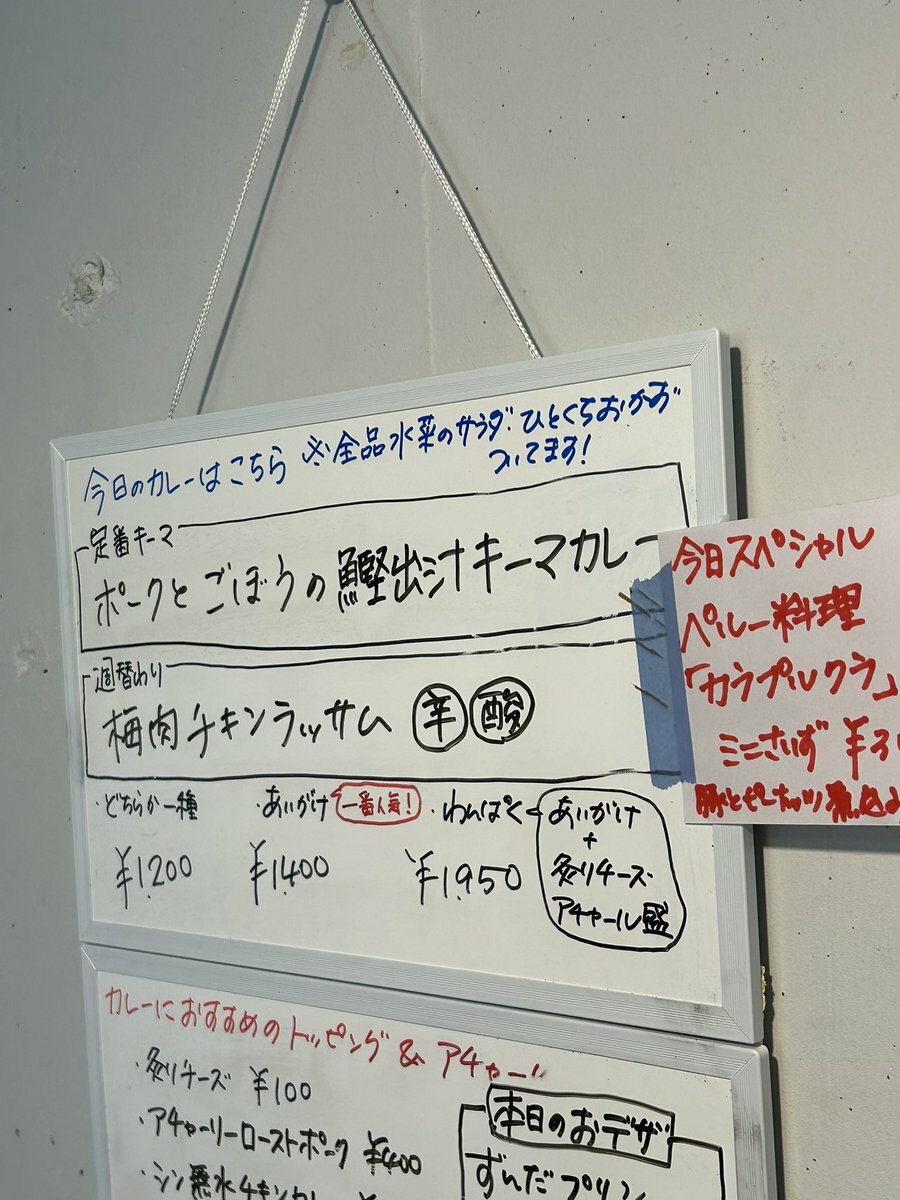 今日のカレーはこちら ※全品水菜のサラダ・ひとくちおかず
ついてます!
定番キーマ
ポークとごぼうの鰹出汁キーマカレー
週替わり
梅肉チキンラッサム 辛 酸
・どちらか一種
¥1200
・あいがけ 一番人気!
¥1400
・わんぱく
¥1950
あいがけ
+
炙りチーズ
アチャール盛
今日スペシャル
ペルー料理
「カラプルクラ」
ミニさいず
豚とピーナッツ煮込み
カレーにおすすめのトッピング & アチャール
・炙りチーズ ¥100
・アチャーリーローストポーク ¥400
・シン無水チキンカレー
本日のおデザ
ずんだプリン